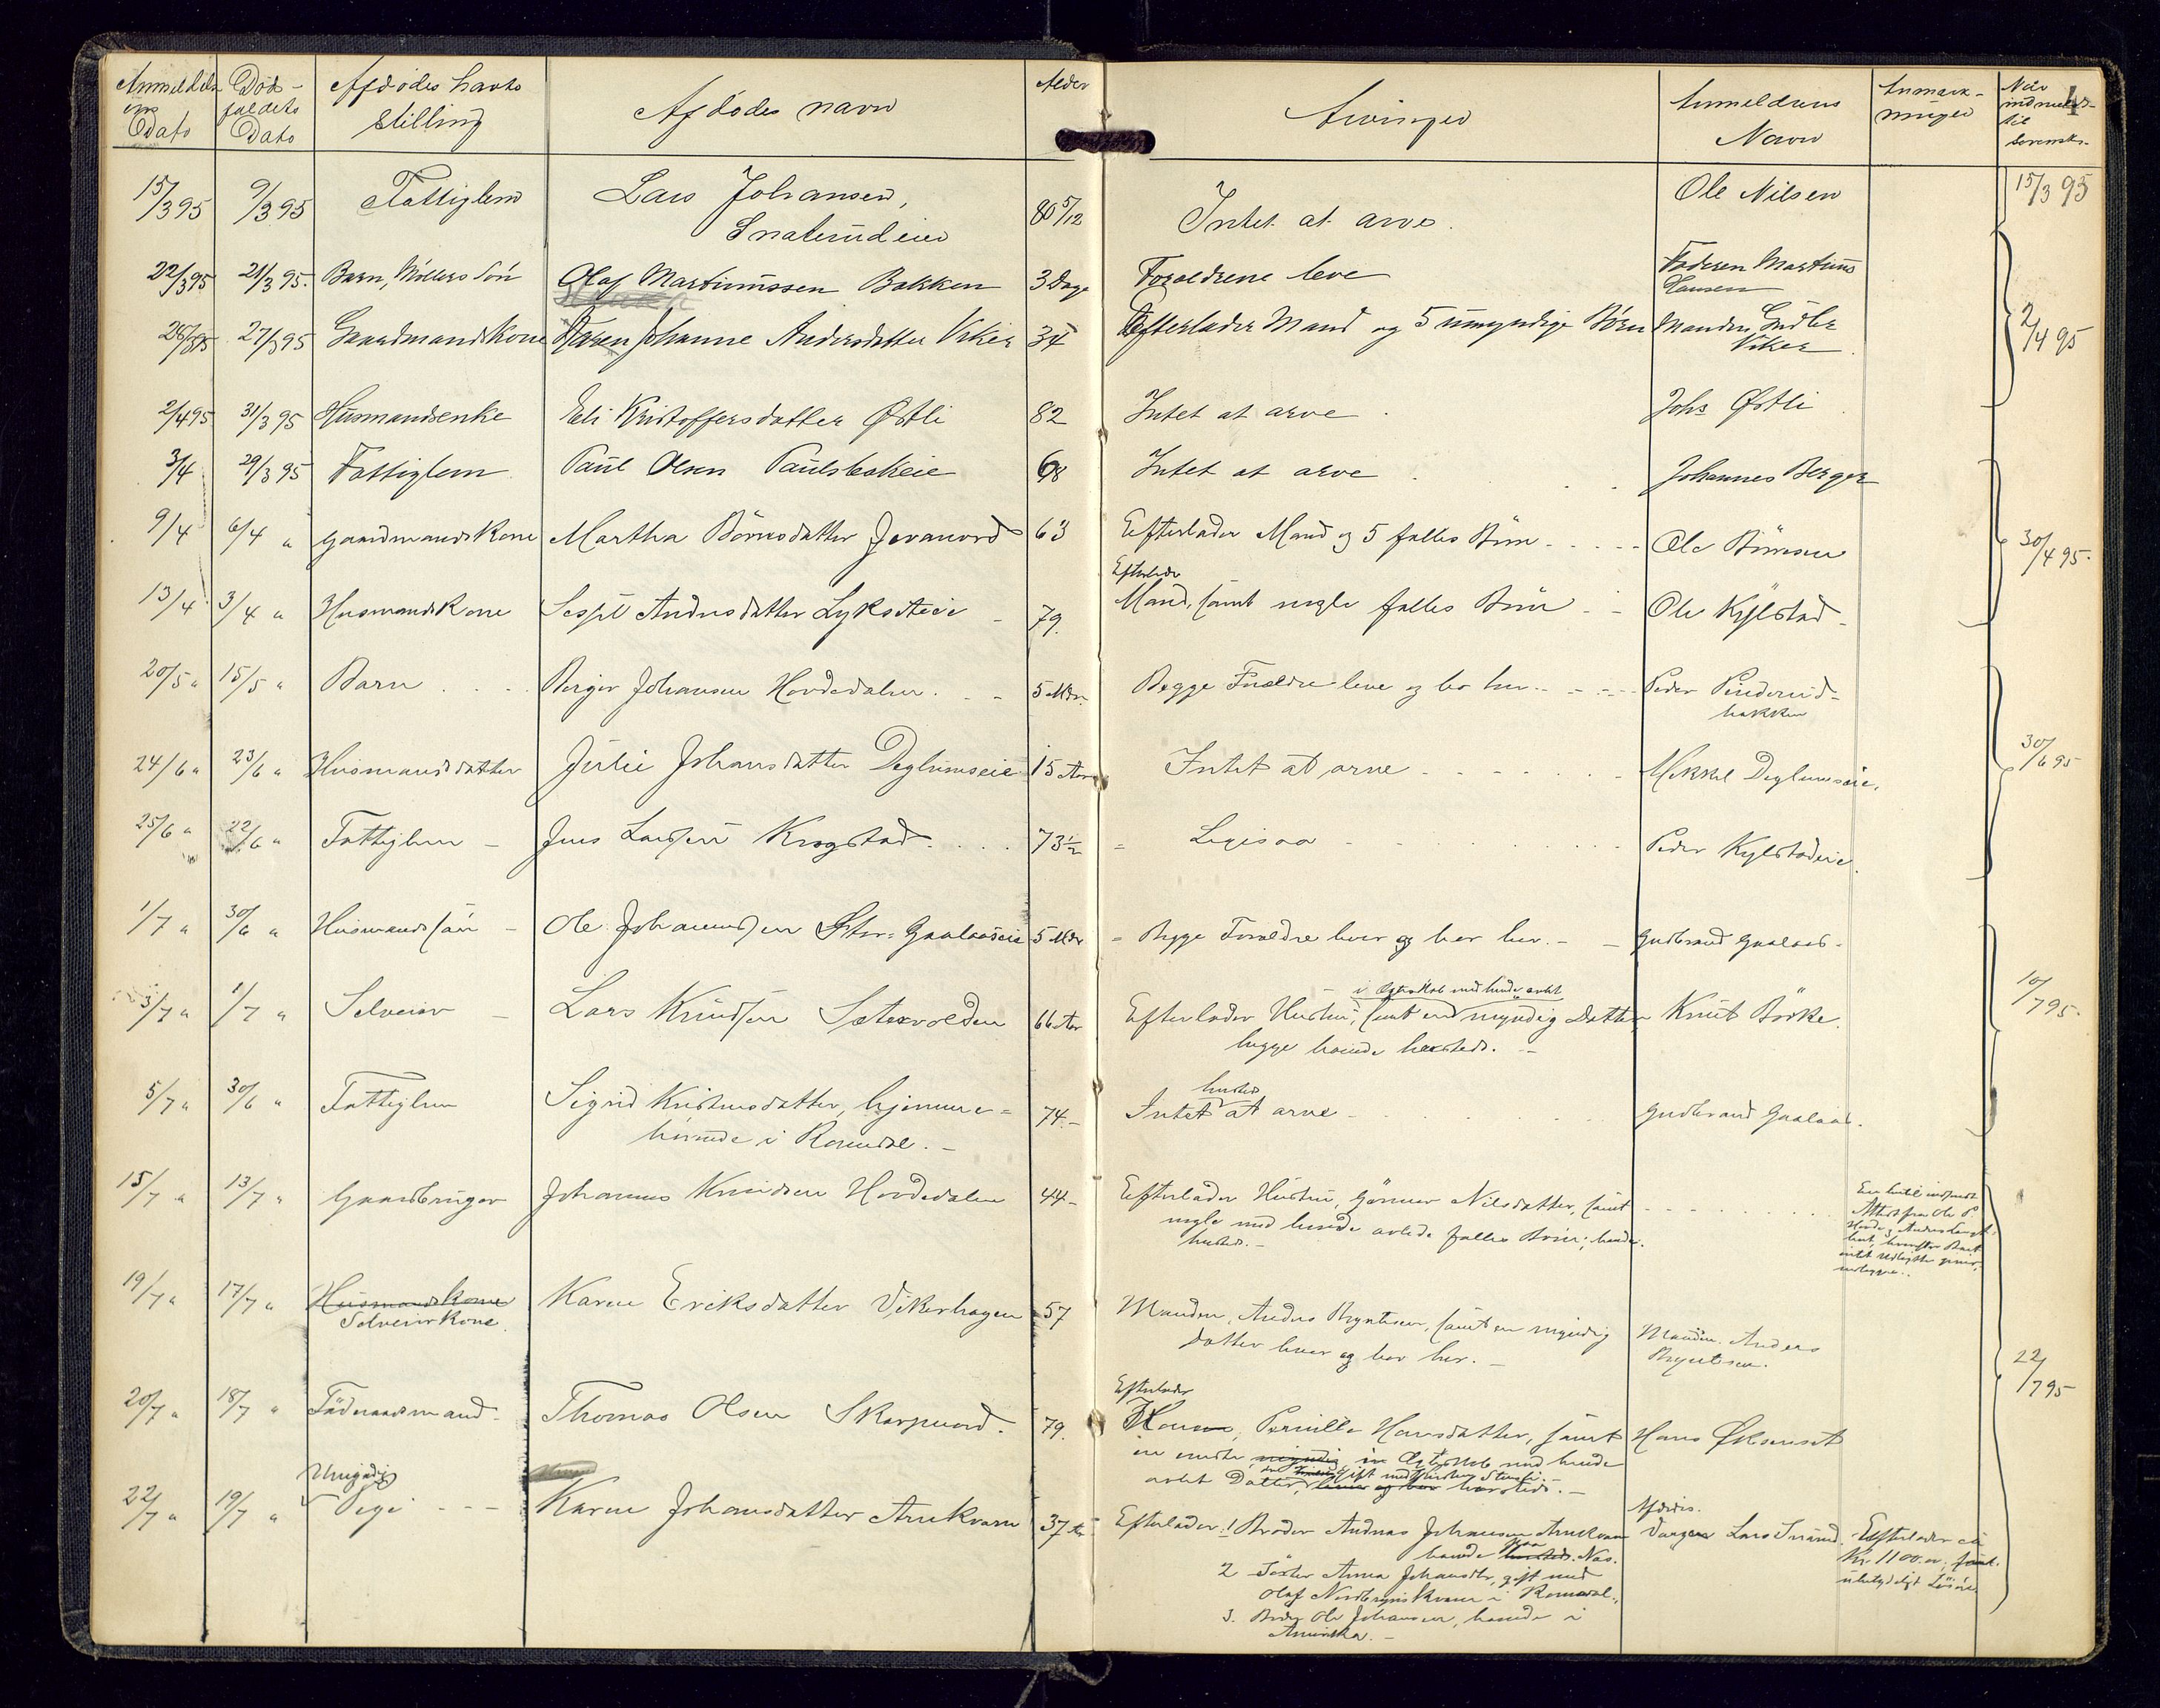 Anmeldelsens Dato | Dødsfaldets Dato | Afdødes havte stilling | Afdødes navn | Alder | Arvinger | Anmelderens Navn | Anmærkninger | Når indmeldt til sorensk. | 4
15/3 95 | 9/3 95 | Fattiglem | Lars Johansen, | 80 5/12 | Intet at arve. | Ole Nilsen | 15/3 95
Snaterudeier
22/3 95 | 21/3 95. | Barn, Møllers Søn | Olaf Martiniussen Bakken | 3 Dage | Foreldrene leve | Faderen Martinus
Hansen
28/3 95 | 27/3 95 | Gaardmandskone | Karen Johanne Andersdatter Viker | 34 | Efterlader Mand og 5 umyndige Børn | Manden Gudbr. | 2/4 95
Viker
2/4 95 | 31/3 95 | Husmandsenke | Eli Kristoffersdatter Østli | 82 | Intet at arve | Johs Østli
3/4 | 29/3 95 | Fattiglem | Paul Olsen Paulsbakeie | 68 | Intet at arve | Johannes Berger
9/4 | 6/4 " | Gaardmandskone | Martha Börresdatter Jevanord | 63 | Efterlader Mand og 5 fælles Börn | Ole Börresen | 30/4 95.
13/4 | 3/4 " | Husmandskone | Andersdatter | 79. | Efterlader
Mand, samt nogle fælles Börn | Ole Kylstad
20/5 " | 15/5 " | Barn | Birger Johansen Hovdedalen. | 5 Mdr. | Begge Forældre leve og bor her. | Peder Pinderud-
bakken
24/6 " | 23/6 " | Husmandsdatter | Julie Johansdatter Deglumseie | 15 Aar | Intet at arve | Mikkel Deglumseie. | 30/6 95
25/6 " | 22/6 " | Fattiglem | Jens Larssen Krogstad. | 73½ | Ligesaa | Peder Kylstadeie.
1/7 " | 30/6 " | Husmandssön | Ole Johannessen Gaalaaseie | 5 Mdr | Begge Forældre lever og bor her. | Gudbrand Gaalaas.
3/7 " | 1/7 " | Selveier | Lars Knudsen Sætervolden | 66 Aar | i Ægteskab med hende avlet
Efterlader Hustru, samt en myndig Datter | Knut Börke. | 10/7 95.
begge boende hersteds.
5/7 " | 30/6 " | Fattiglem | Sigrid Kristensdatter, hjemme= | 74. | hersteds
Intet at arve | Gudbrand Gaalaas.
hörende i Romedal.
15/7 " | 13/7 " | Gaardbruger | Johannes Knudsen Hovdedalen | 44 | Efterlader Hustru, Gönner Nilsdatter, samt
nogle med hende avlede fælles Börn; boende
hersteds.
19/7 " | 17/7 " | Husmandskone | Karen Eriksdatter Vikerhagen | 57 | Manden, Anders Bryntesen, samt en myndig | Manden. Anders
Selveierkone. | Datter lever og bor her. | Bryntesen. | 22/7 95
20/7 " | 18/7 " | Föderaadsmand | Thomas Olsen Skarpnord. | 79. | Efterlader
Kone, Pernille Hansdatter, samt | Hans Øksenset
en eneste myndig i Ægteskab med hende
avlet Datter, gift lever og bor hersteds.
22/7 " | 19/7 " | Umyndig
Pige | Karen Johansdatter Arnkværn | 37 Aar | Efterlader: 1 Broder Andreas Johansen Arnkværn | Afdödes
Værge Lars | Efterlader ca
boende paa hersteds. Næs. | Kr. 1100.00, samt
2 Söster Anna Johansdtr, gift med | ubetydeligt Lösöre
Olaf Nordbryniskværn i Romedal.
3. Broder Ole Johansen, boende i
Amerika.